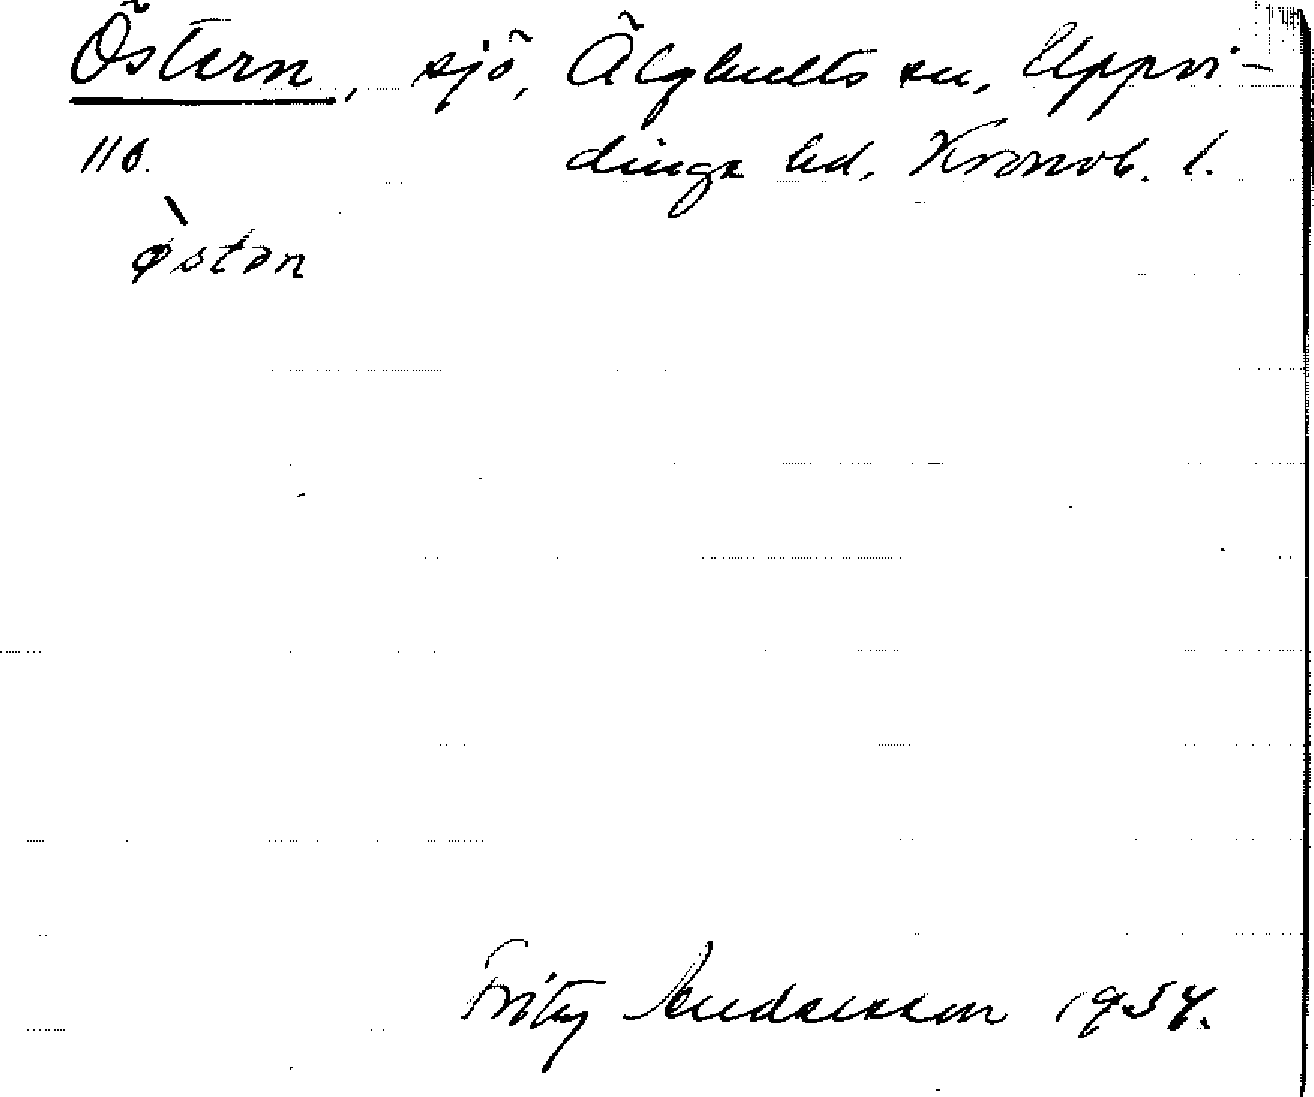 Östern, sjö, Älghults sn, Uppvi-
110. dinge hd, Kronob. l.
østən
Fritz Andersson 1954.